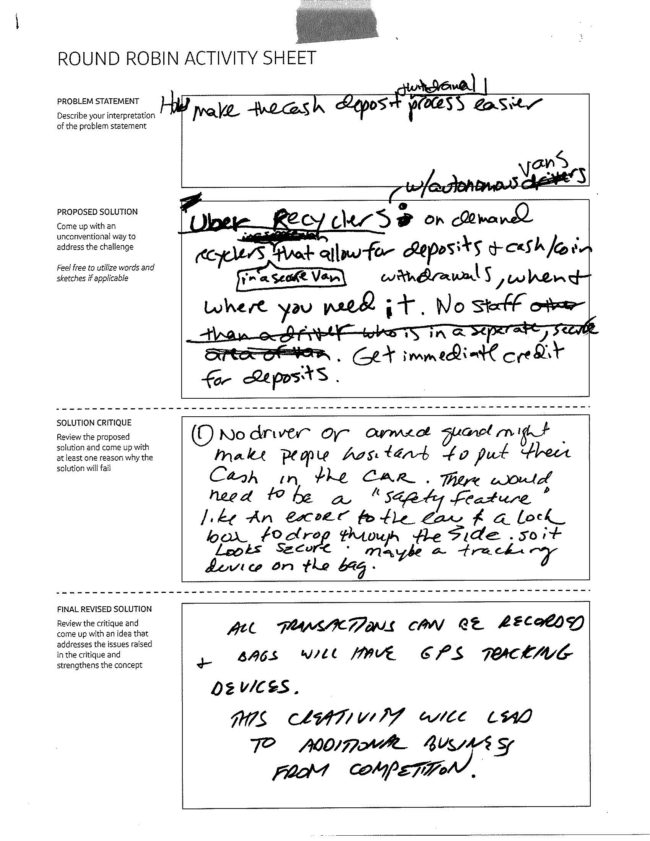 ROUND ROBIN ACTIVITY SHEET
PROBLEM STATEMENT
Describe your interpretation
of the problem statement
withdrawal |
How make the cash deposit process easier
PROPOSED SOLUTION
Come up with an
unconventional way to
address the challenge
Feel free to utilize words and
sketches if applicable
vans
w/autonomous drivers
Uber Recyclers on demand
recyclers that allow for deposits + cash/coin
in a secure van withdrawals, when +
where you need it. No staff other
than a driver who is in a seperate, secure
area of van. Get immediate credit
for deposits.
SOLUTION CRITIQUE
Review the proposed
solution and come up with
at least one reason why the
solution will fail
(1) No driver or armed guard might
make people hesitant to put their
Cash in the CAR. There would
need to be a "safety feature"
like an to the car & a lock
box to drop through the side. so it
Looks secure. maybe a tracking
device on the bag.
FINAL REVISED SOLUTION
Review the critique and
come up with an idea that
addresses the issues raised
in the critique and
strengthens the concept
ALL TRANSACTIONS CAN BE RECORDED
+ BAGS WILL HAVE GPS TRACKING
DEVICES.
THIS CREATIVITY WILL LEAD
TO ADDITIONAL BUSINESS
FROM COMPETITION.